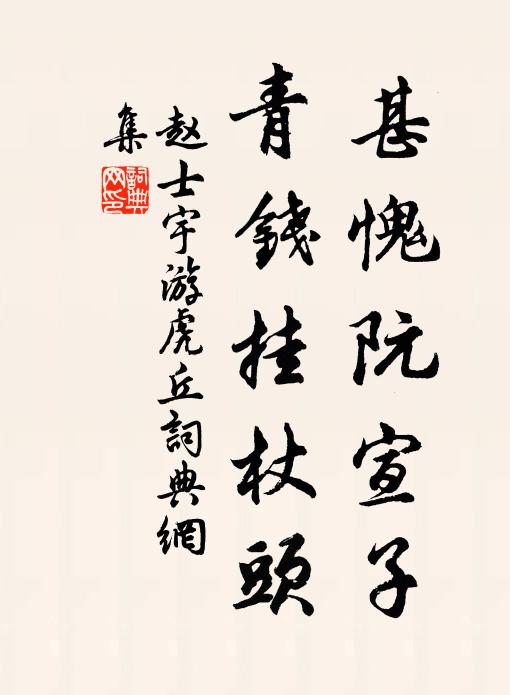 甚愧阮宣子
青錢挂杖頭
赵士宇游虎丘詞典網
集
詞典网印